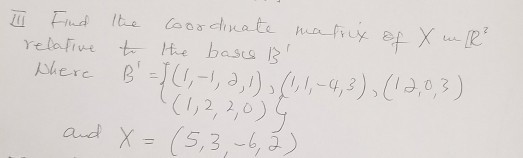 III Find the coordinate matrix of X in R²
relative to the bases B'
Where B' = {(1,-1,2,1), (1,1,-4,3), (1 2,0,3)
(1,2,2,0)}
and X = (5,3,-6,2)